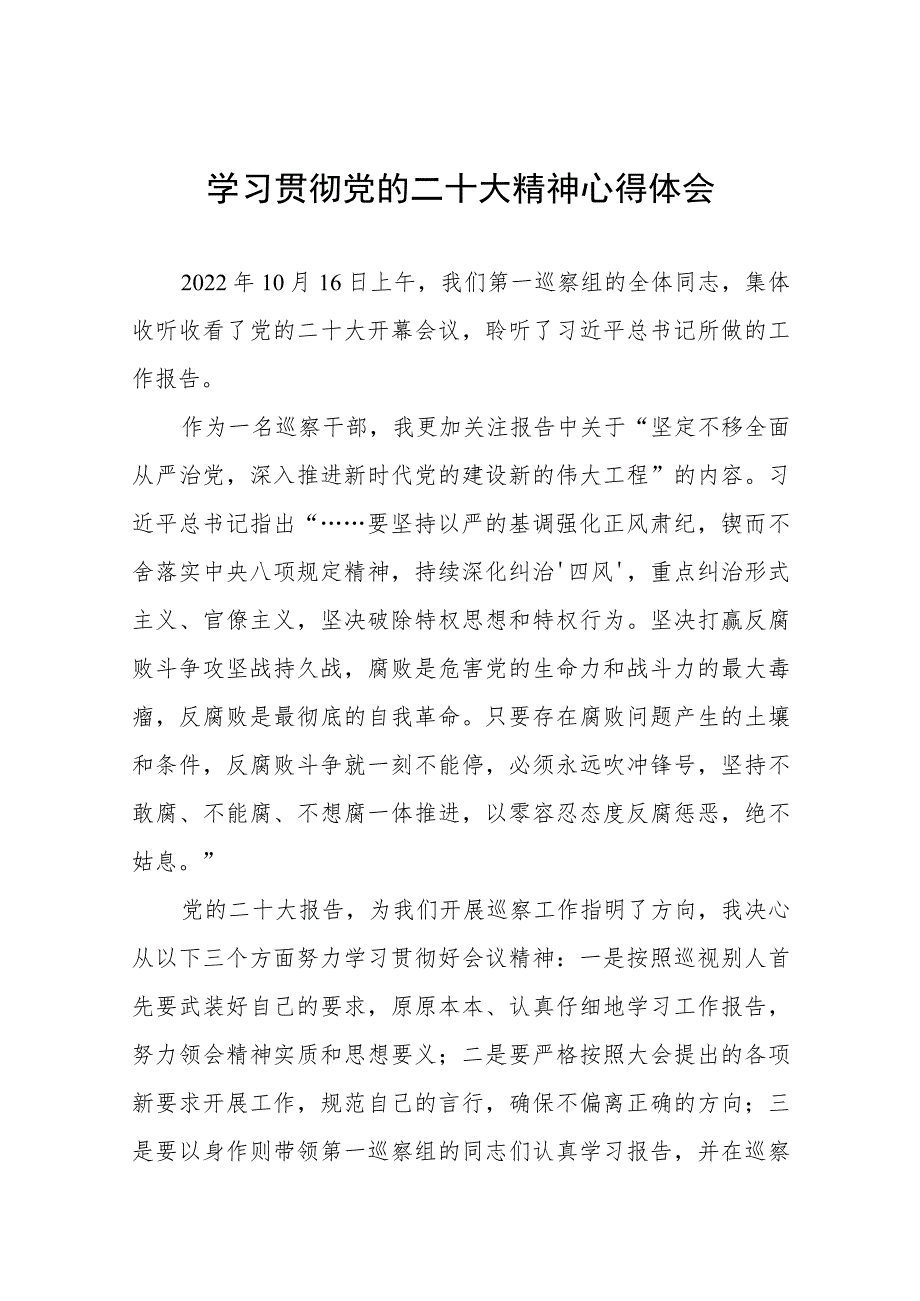 学习贯彻党的二十大精神心得体会
2022 年 10 月 16 日上午，我们第一巡察组的全体同志，集体
收听收看了党的二十大开幕会议，聆听了习近平总书记所做的工
作报告。
作为一名巡察干部，我更加关注报告中关于“坚定不移全面
从严治党，深入推进新时代党的建设新的伟大工程”的内容。习
近平总书记指出“……要坚持以严的基调强化正风肃纪，锲而不
舍落实中央八项规定精神，持续深化纠治'四风'，重点纠治形式
主义、官僚主义，坚决破除特权思想和特权行为。坚决打赢反腐
败斗争攻坚战持久战，腐败是危害党的生命力和战斗力的最大毒
瘤，反腐败是最彻底的自我革命。只要存在腐败问题产生的土壤
和条件，反腐败斗争就一刻不能停，必须永远吹冲锋号，坚持不
敢腐、不能腐、不想腐一体推进，以零容忍态度反腐惩恶，绝不
姑息。”
党的二十大报告，为我们开展巡察工作指明了方向，我决心
从以下三个方面努力学习贯彻好会议精神：一是按照巡视别人首
先要武装好自己的要求，原原本本、认真仔细地学习工作报告，
努力领会精神实质和思想要义；二是要严格按照大会提出的各项
新要求开展工作，规范自己的言行，确保不偏离正确的方向；三
是要以身作则带领第一巡察组的同志们认真学习报告，并在巡察